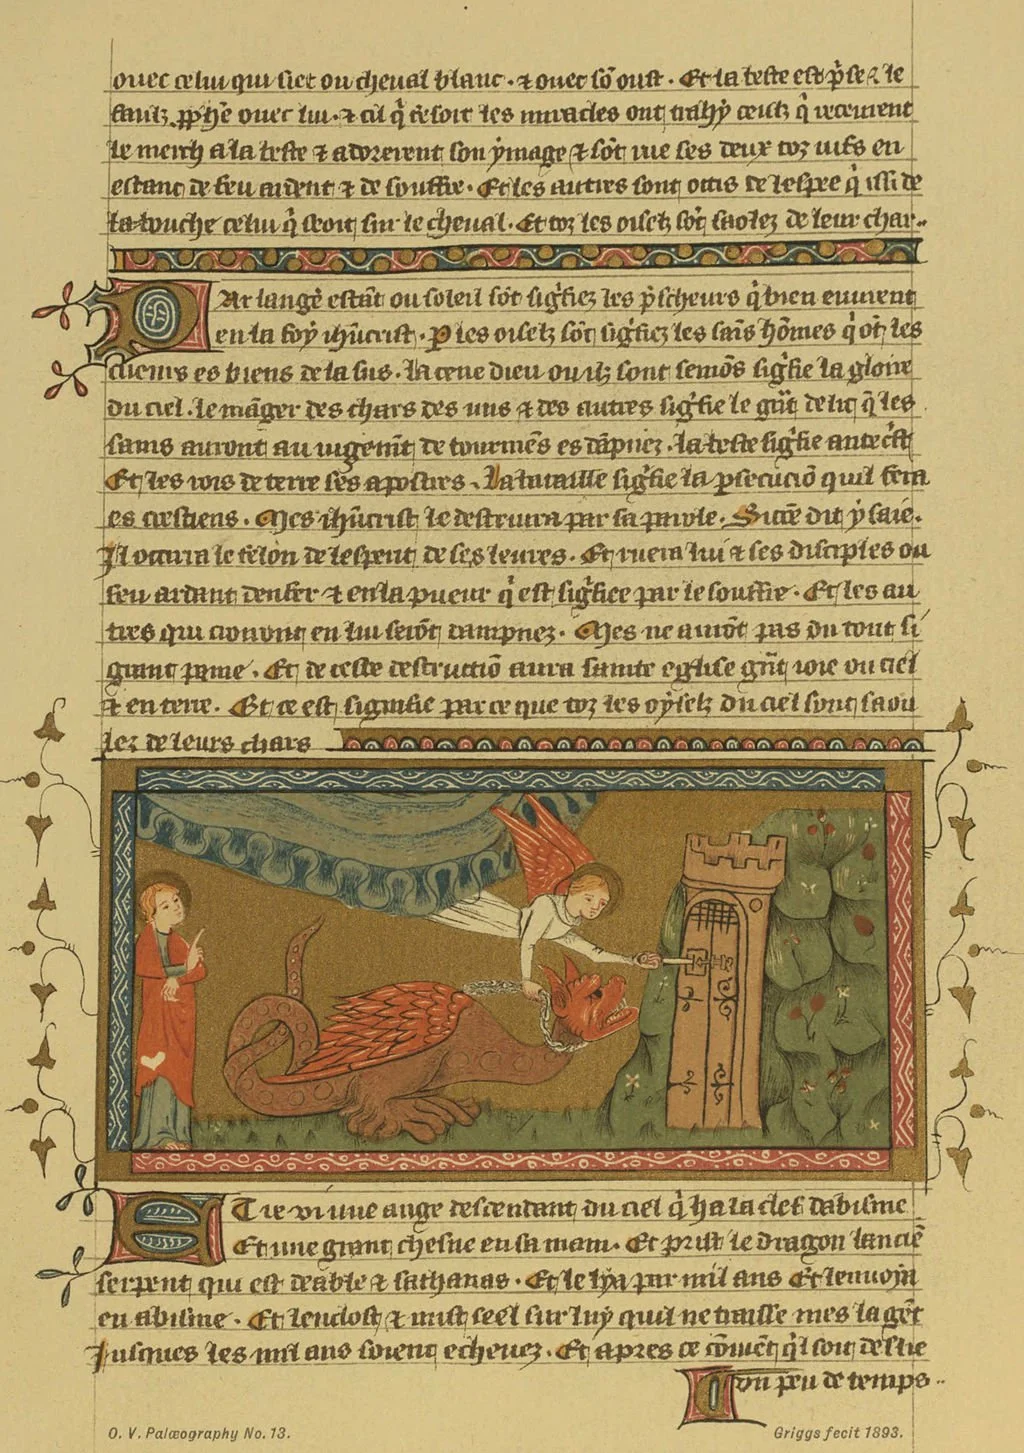 ouec celui qui siet ou cheual blanc · ⁊ ouec sō oust · Et la beste est p̄se ⁊ le
faulz pphē ouec lui · ⁊ cil q̄ fesoit les miracles ont trahy ceulz q̄ receuient
le merch a la beste ⁊ adorerent son ymage ⁊ sōt mis ces deux toz uifs en
estanc de feu ardent ⁊ de souffre · Et les autres sont occis de lespee q̄ issi de
la bouche celui q̄ seoit sur le cheual · Et toz les oiselz sōt saolez de leur char ··
Par lange estāt ou soleil sōt siḡfiez les p̄scheurs q̄ bien euurent
en la foy ihūcrist · P les oiselz sōt siḡfiez les sains hōmes q̄ ōt les
es biens de la sus · la cene dieu ou ilz sont semōs siḡfie la gloire
du ciel · le māger des chars des uns ⁊ des autres siḡfie le ḡnt delit q̄ les
sains auront au uigemt de tourmēs es dāpnez · la beste siḡfie antecst
Et les rois de terre ses apostres · la bataille siḡfie la psecuciō quil fera
es crestiens · Mes ihūcrist le destruira par sa parole · Sicōe dit ysaie ·
Il occirra le felon de lesperit de ses leures · Et ruera lui ⁊ ses disciples ou
feu ardant denfer ⁊ en la pueur q̄ est siḡfiee par le souffre · Et les au
tres qui cioront en lui serōt dampnez · Mes ne aurōt pas du tout si
grant paine · Et de ceste destructiō aura sainte eglise ḡnt ioie ou ciel
⁊ en terre · Et ce est signifie par ce que toz les oyselz du ciel sont saou
lez de leurs chars
Et ie vi une ange descendant du ciel q̄ ha la clef dabisme
Et une grant chesne en sa main · Et prist le dragon lanciē
serpent qui est deable ⁊ sathanas · Et le lya par mil ans Et lenuoia
en abisme · Et lenclost ⁊ mist seel sur luy quil ne traisse mes la gēt
Jusques les mil ans soient echeuez · Et apres ce cōuēt q̄l soit deslie
i un peu de temps ··
O. V. Palæography No. 13.
Griggs fecit 1893.